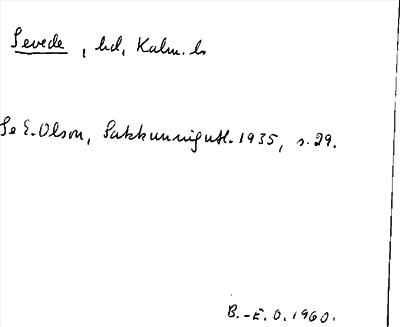 Sevede, hd, Kalm. l.
Se E. Olson, Sakkunnigutl. 1935, s. 29.
B.-E. O. 1960.